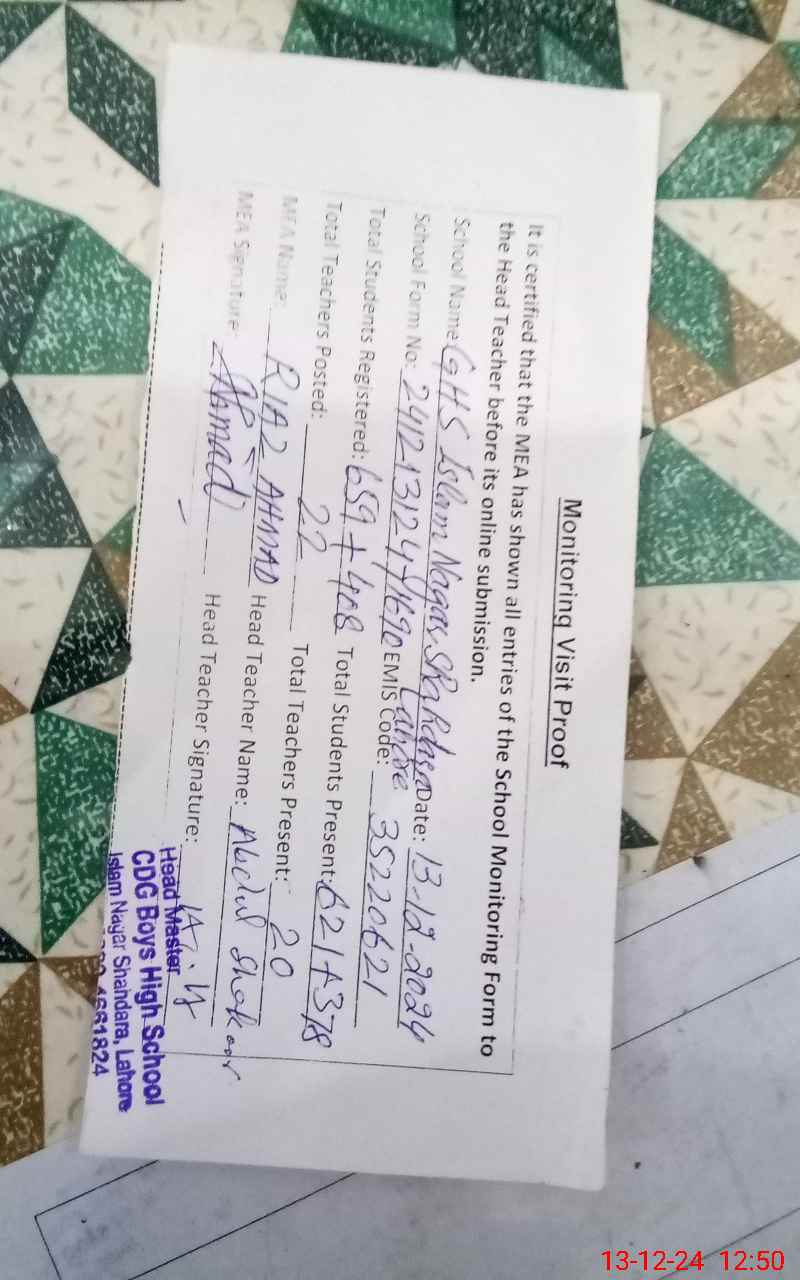 Monitoring Visit Proof
It is certified that the MEA has shown all entries of the School Monitoring Form to
the Head Teacher before its online submission.
School Name: GHS Islam Nagar Shahdara Lahore Date: 13-12-2024
School Form No: EMIS Code: 35220621
Total Students Registered: 659 + 408 Total Students Present: 621+378
Total Teachers Posted: 22 Total Teachers Present: 20
MEA Name: RIAZ AHMAD Head Teacher Name: Abdul Shakoor
MEA Signature: Ahmad Head Teacher Signature:
Head Master
CDG Boys High School
Islam Nagar Shahdara, Lahore
4661824
13-12-24 12:50